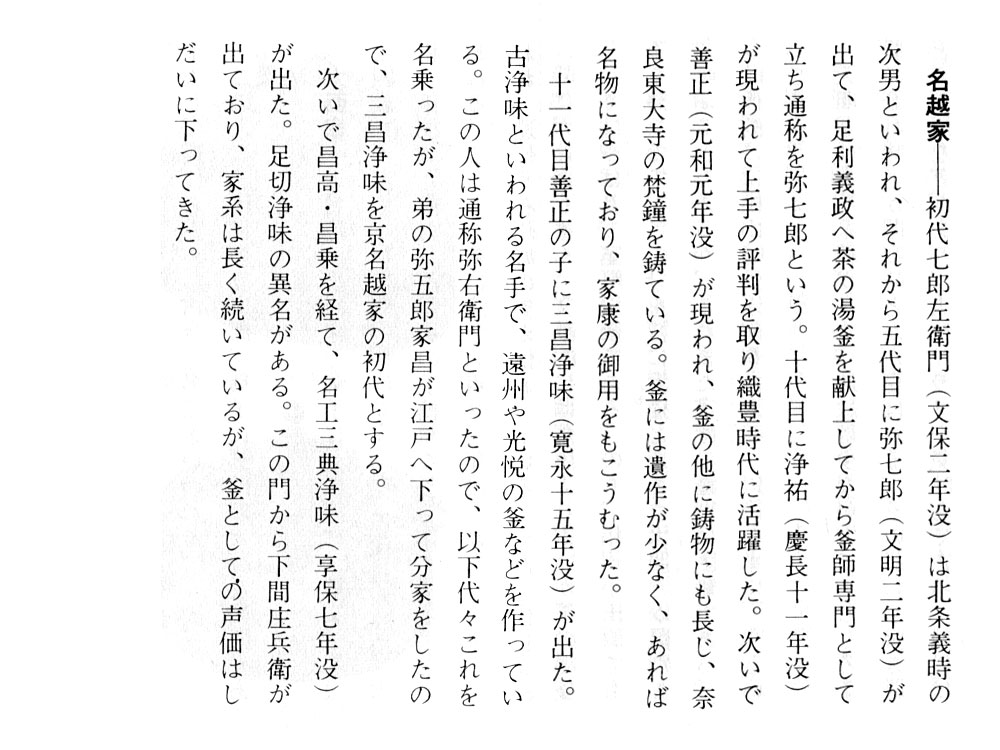 名越家――初代七郎左衛門（文保二年没）は北条義時の
次男といわれ、それから五代目に弥七郎（文明二年没）が
出て、足利義政へ茶の湯釜を献上してから釜師専門として
立ち通称を弥七郎という。十代目に浄祐（慶長十一年没）
が現われて上手の評判を取り織豊時代に活躍した。次いで
善正（元和元年没）が現われ、釜の他に鋳物にも長じ、奈
良東大寺の梵鐘を鋳ている。釜には遺作が少なく、あれば
名物になっており、家康の御用をもこうむった。
十一代目善正の子に三昌浄味（寛永十五年没）が出た。
古浄味といわれる名手で、遠州や光悦の釜などを作ってい
る。この人は通称弥右衛門といったので、以下代々これを
名乗ったが、弟の弥五郎家昌が江戸へ下って分家をしたの
で、三昌浄味を京名越家の初代とする。
次いで昌高・昌乗を経て、名工三典浄味（享保七年没）
が出た。足切浄味の異名がある。この門から下間庄兵衛が
出ており、家系は長く続いているが、釜としての声価はし
だいに下ってきた。